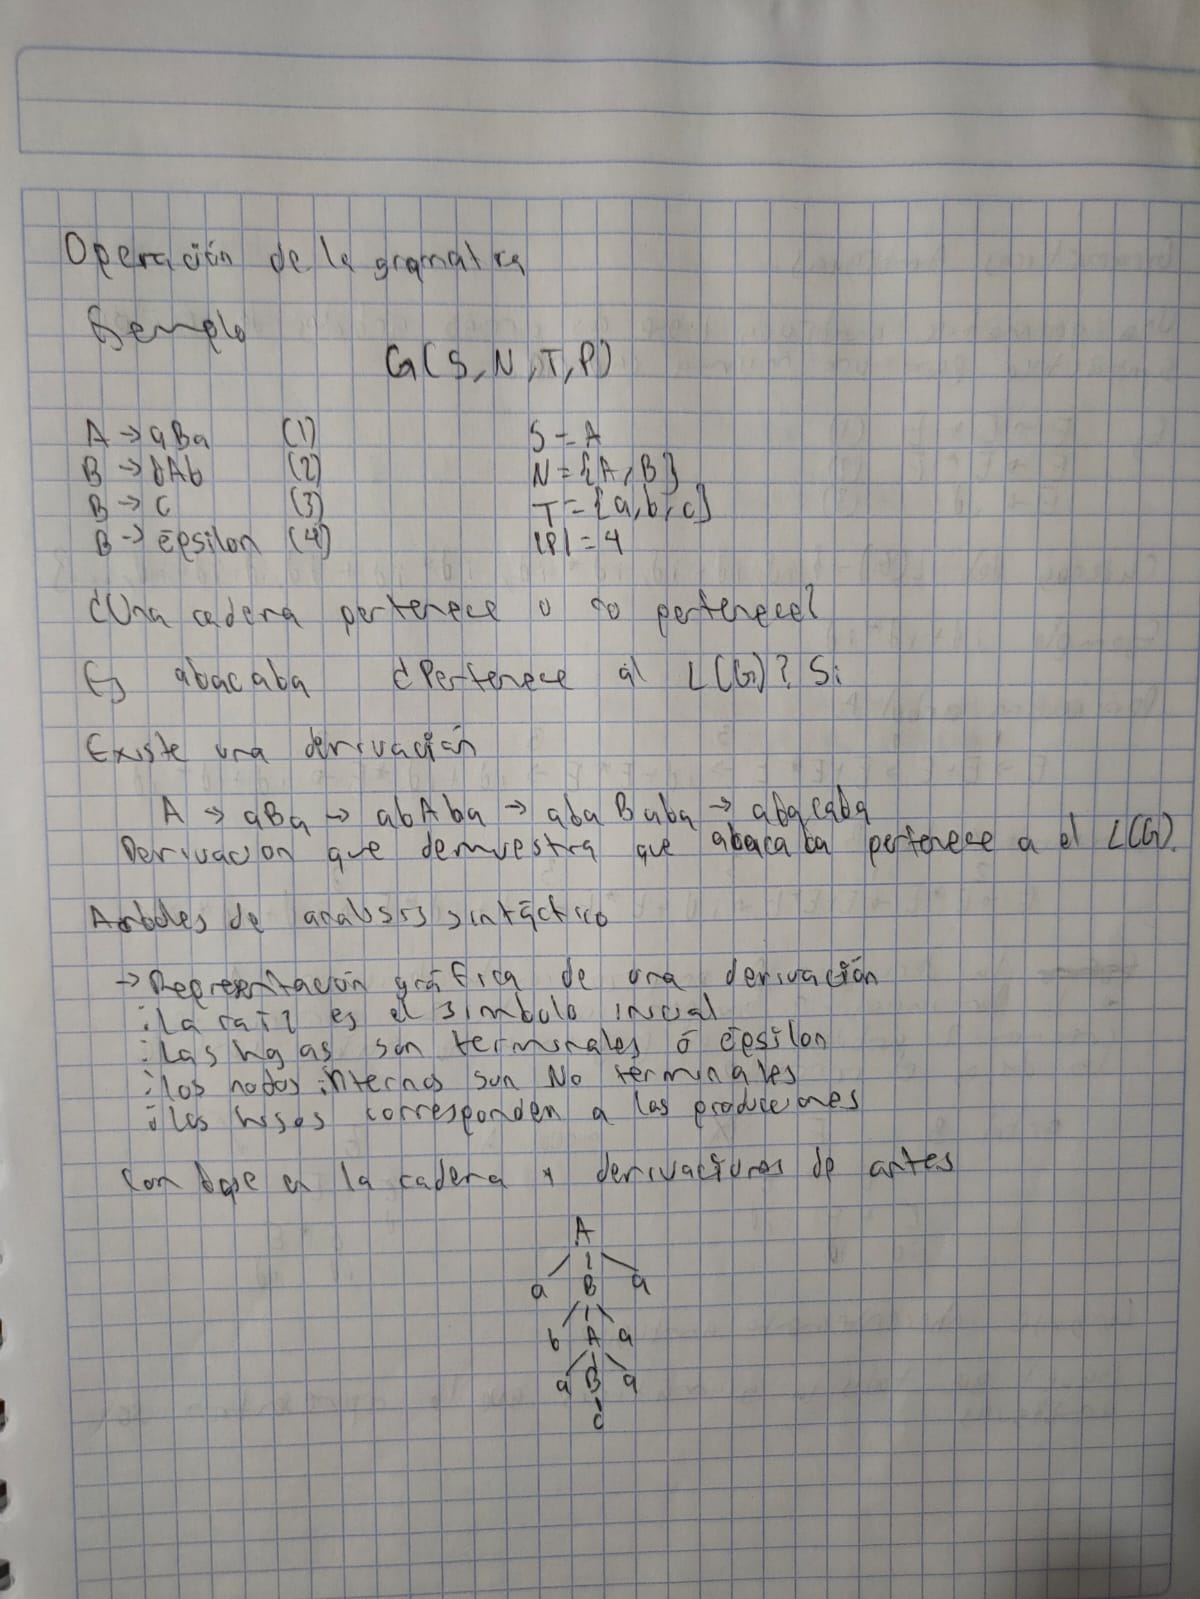 Operación de la gramatica
Ejemplo
G(S, N, T, P)
A → aBa (1) S = A
B → bAb (2) N = {A, B}
B → c (3) T = {a, b, c}
B → épsilon (4) |P| = 4
¿Una cadena pertenece o no pertenece?
Ej abacaba ¿Pertenece al L(G)? Si
Existe una derivación
A → aBa → abAba → abaBaba → abacaba
Derivacion que demuestra que abacaba pertenece a el L(G).
Arboles de analisis sintáctico
→ Representación gráfica de una derivación
: La raíz es el simbolo inicial
: Las hojas son terminales ó épsilon
: los nodos internos son No terminales
: los hijos corresponden a las producciones
Con base en la cadena y derivaciones de antes
A
a B a
b A a
a B a
c